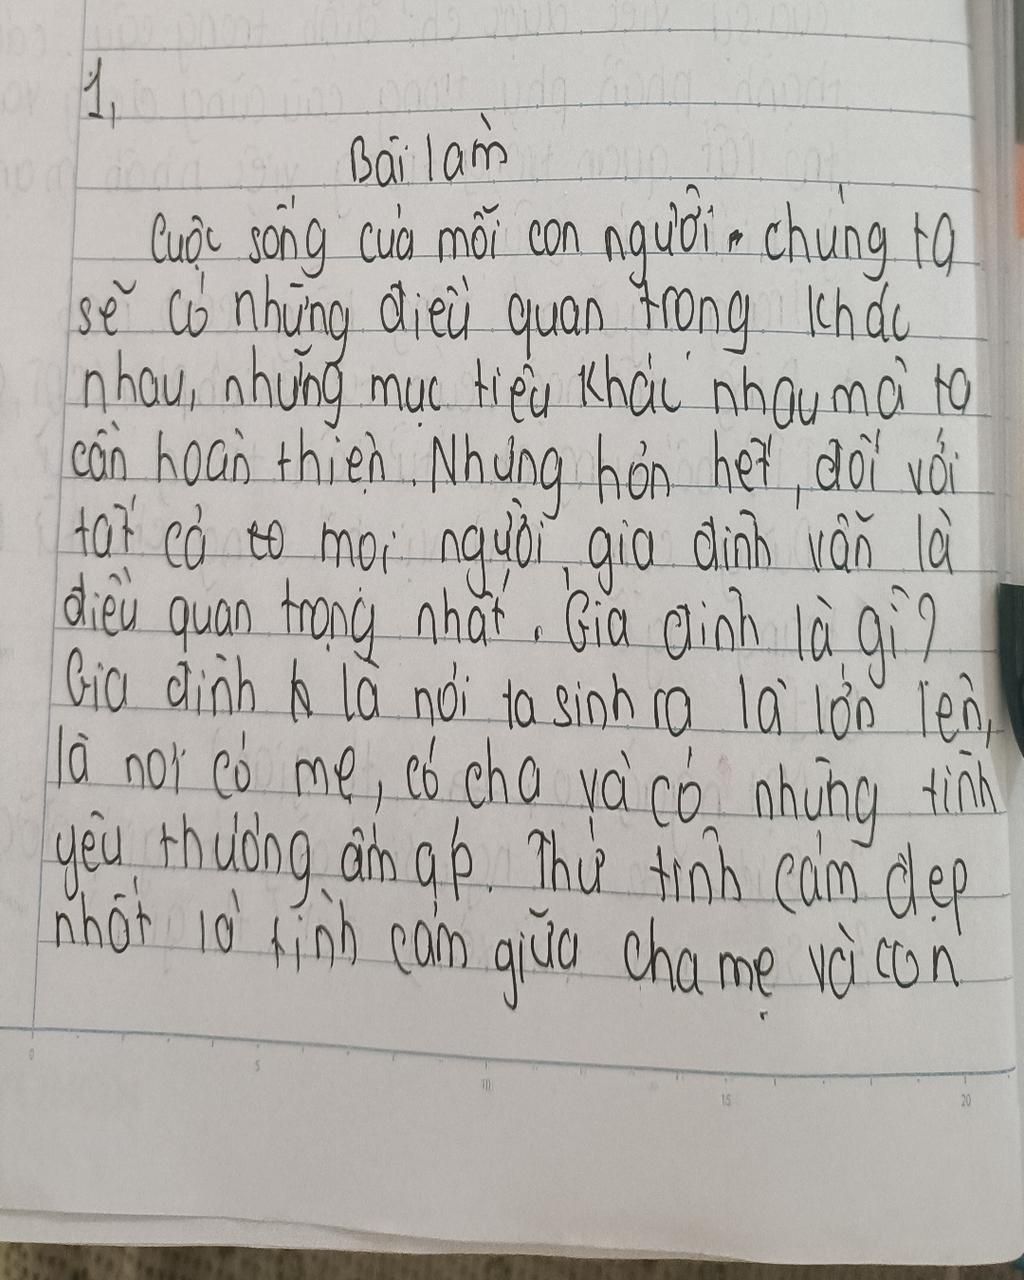 1,
Bài làm
Cuộc sống của mỗi con người chúng ta
sẽ có những điều quan trọng khác
nhau, những mục tiêu khác nhau mà ta
cần hoàn thiện. Nhưng hơn hết, đối với
tất cả mọi người, gia đình vẫn là
điều quan trọng nhất. Gia đình là gì?
Gia đình là nơi ta sinh ra là lớn lên,
là nơi có mẹ, có cha và có những tình
yêu thương ấm áp. Thứ tình cảm đẹp
nhất là tình cảm giữa cha mẹ và con
0 5 10 15 20